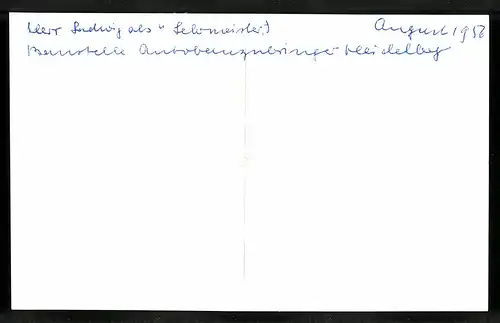 Herr Ludwig als "Lehrmeister" August 1958
Baustelle Autobahnzubringer Heidelberg